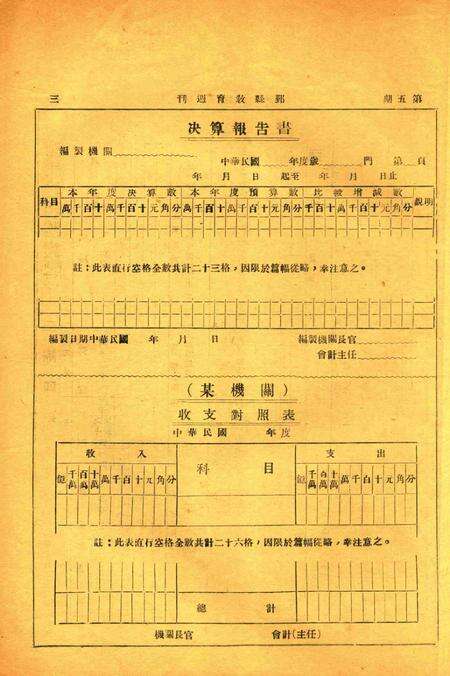 第五期 鄞縣教育週刊 三
決算報告書
編製機關
中華民國 年度歲 門 第 頁
年 月 日 起至 年 月 日止
科目 本年度決算數 本年度預算數 比較增減數 說明
萬千百十萬千百十元角分 萬千百十萬千百十元角分 千百十萬千百十元角分
註：此表直行空格全數共計二十三格，因限於篇幅從略，奉注意之。
編製日期中華民國 年 月 日 編製機關長官
會計主任
（某機關）
收支對照表
中華民國 年度
收入 科目 支出
億千萬百萬十萬萬千百十元角分 億千萬百萬十萬萬千百十元角分
註：此表直行空格全數共計二十六格，因限於篇幅從略，奉注意之。
總計
機關長官 會計(主任)